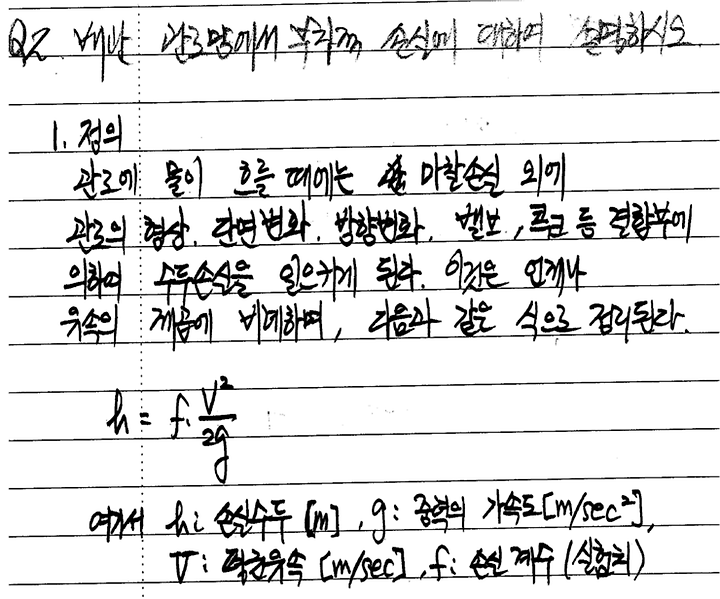 Q2. 배관 관로망에서 부차적 손실에 대하여 설명하시오
1. 정의
관로에 물이 흐를 때에는 마찰손실 외에
관로의 형상, 단면변화, 방향변화, 밸브, 콕크 등 결합부에
의하여 수두손실을 일으키게 된다. 이것은 언제나
유속의 제곱에 비례하며, 다음과 같은 식으로 정리된다.
h = f · V²/2g
여기서 h: 손실수두 [m], g: 중력의 가속도 [m/sec²],
V: 평균유속 [m/sec], f: 손실계수 (실험치)